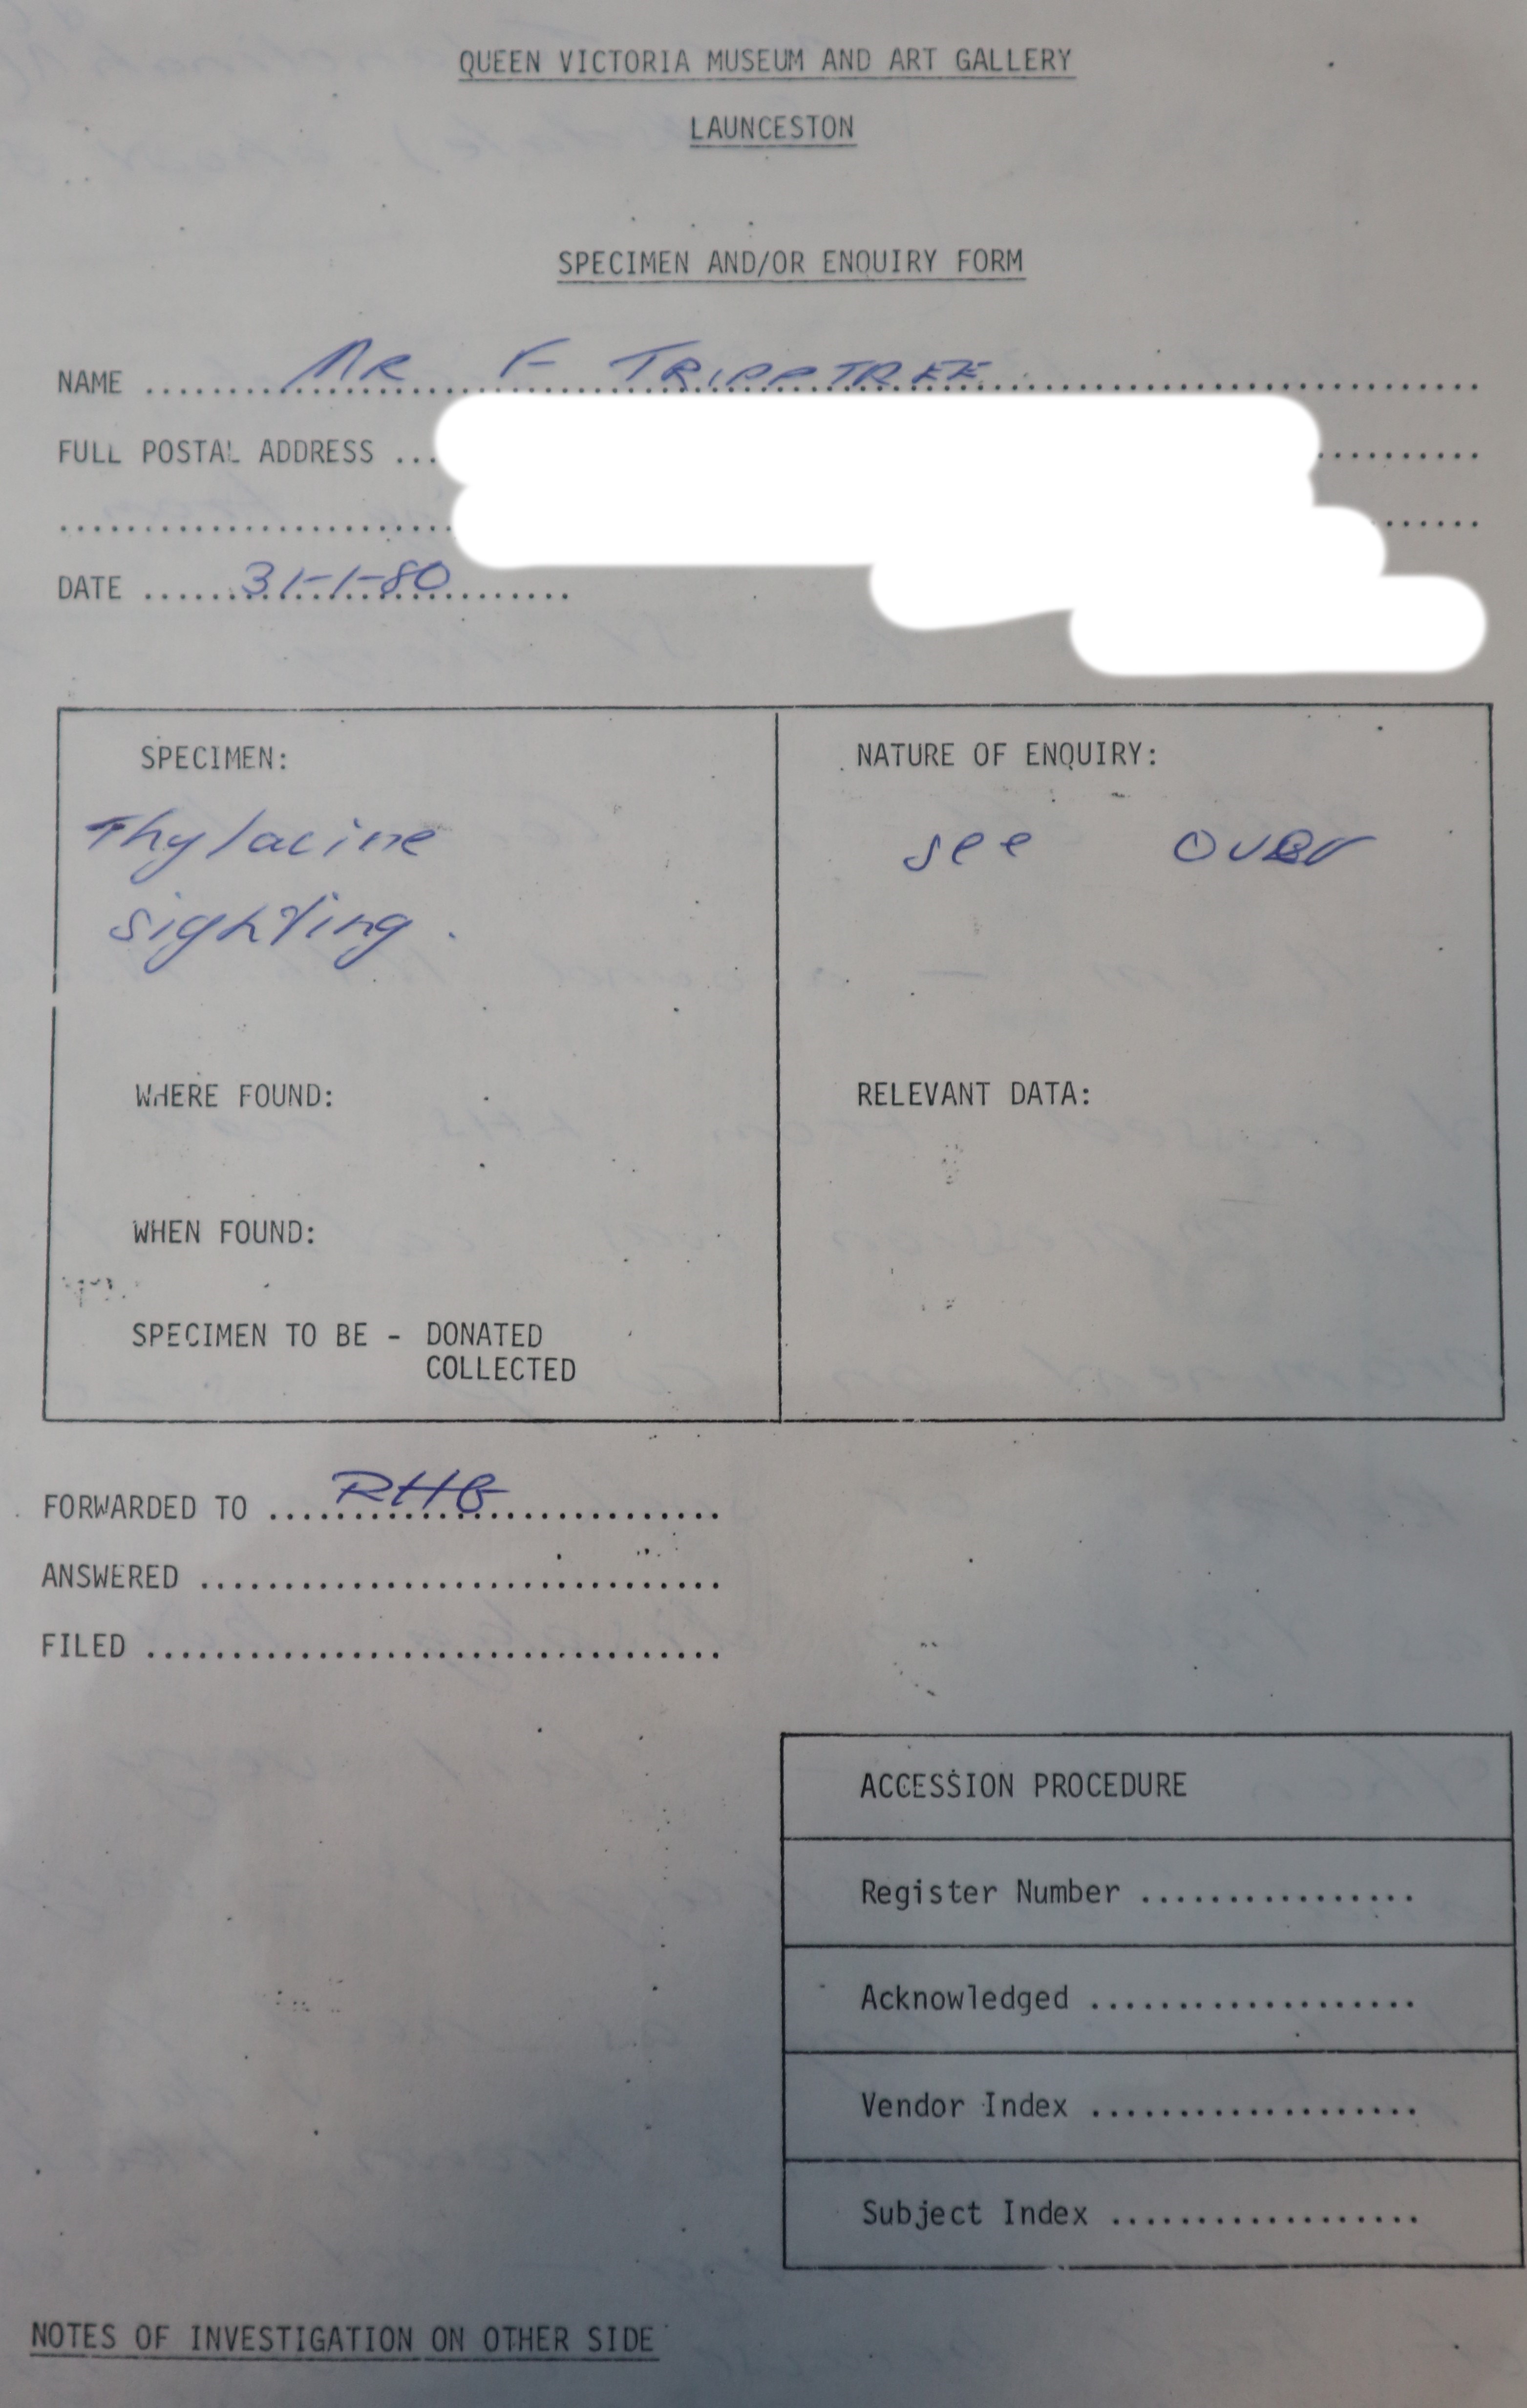 QUEEN VICTORIA MUSEUM AND ART GALLERY
LAUNCESTON
SPECIMEN AND/OR ENQUIRY FORM
NAME ........ MR F TRIPPTREE ........
FULL POSTAL ADDRESS ...
DATE ...... 31-1-80 ......
SPECIMEN:
Thylacine
sighting.
WHERE FOUND:
WHEN FOUND:
SPECIMEN TO BE - DONATED
COLLECTED
NATURE OF ENQUIRY:
see over
RELEVANT DATA:
FORWARDED TO .... RHG ....
ANSWERED ....
FILED ....
ACCESSION PROCEDURE
Register Number ................
Acknowledged ...................
Vendor Index ...................
Subject Index ..................
NOTES OF INVESTIGATION ON OTHER SIDE